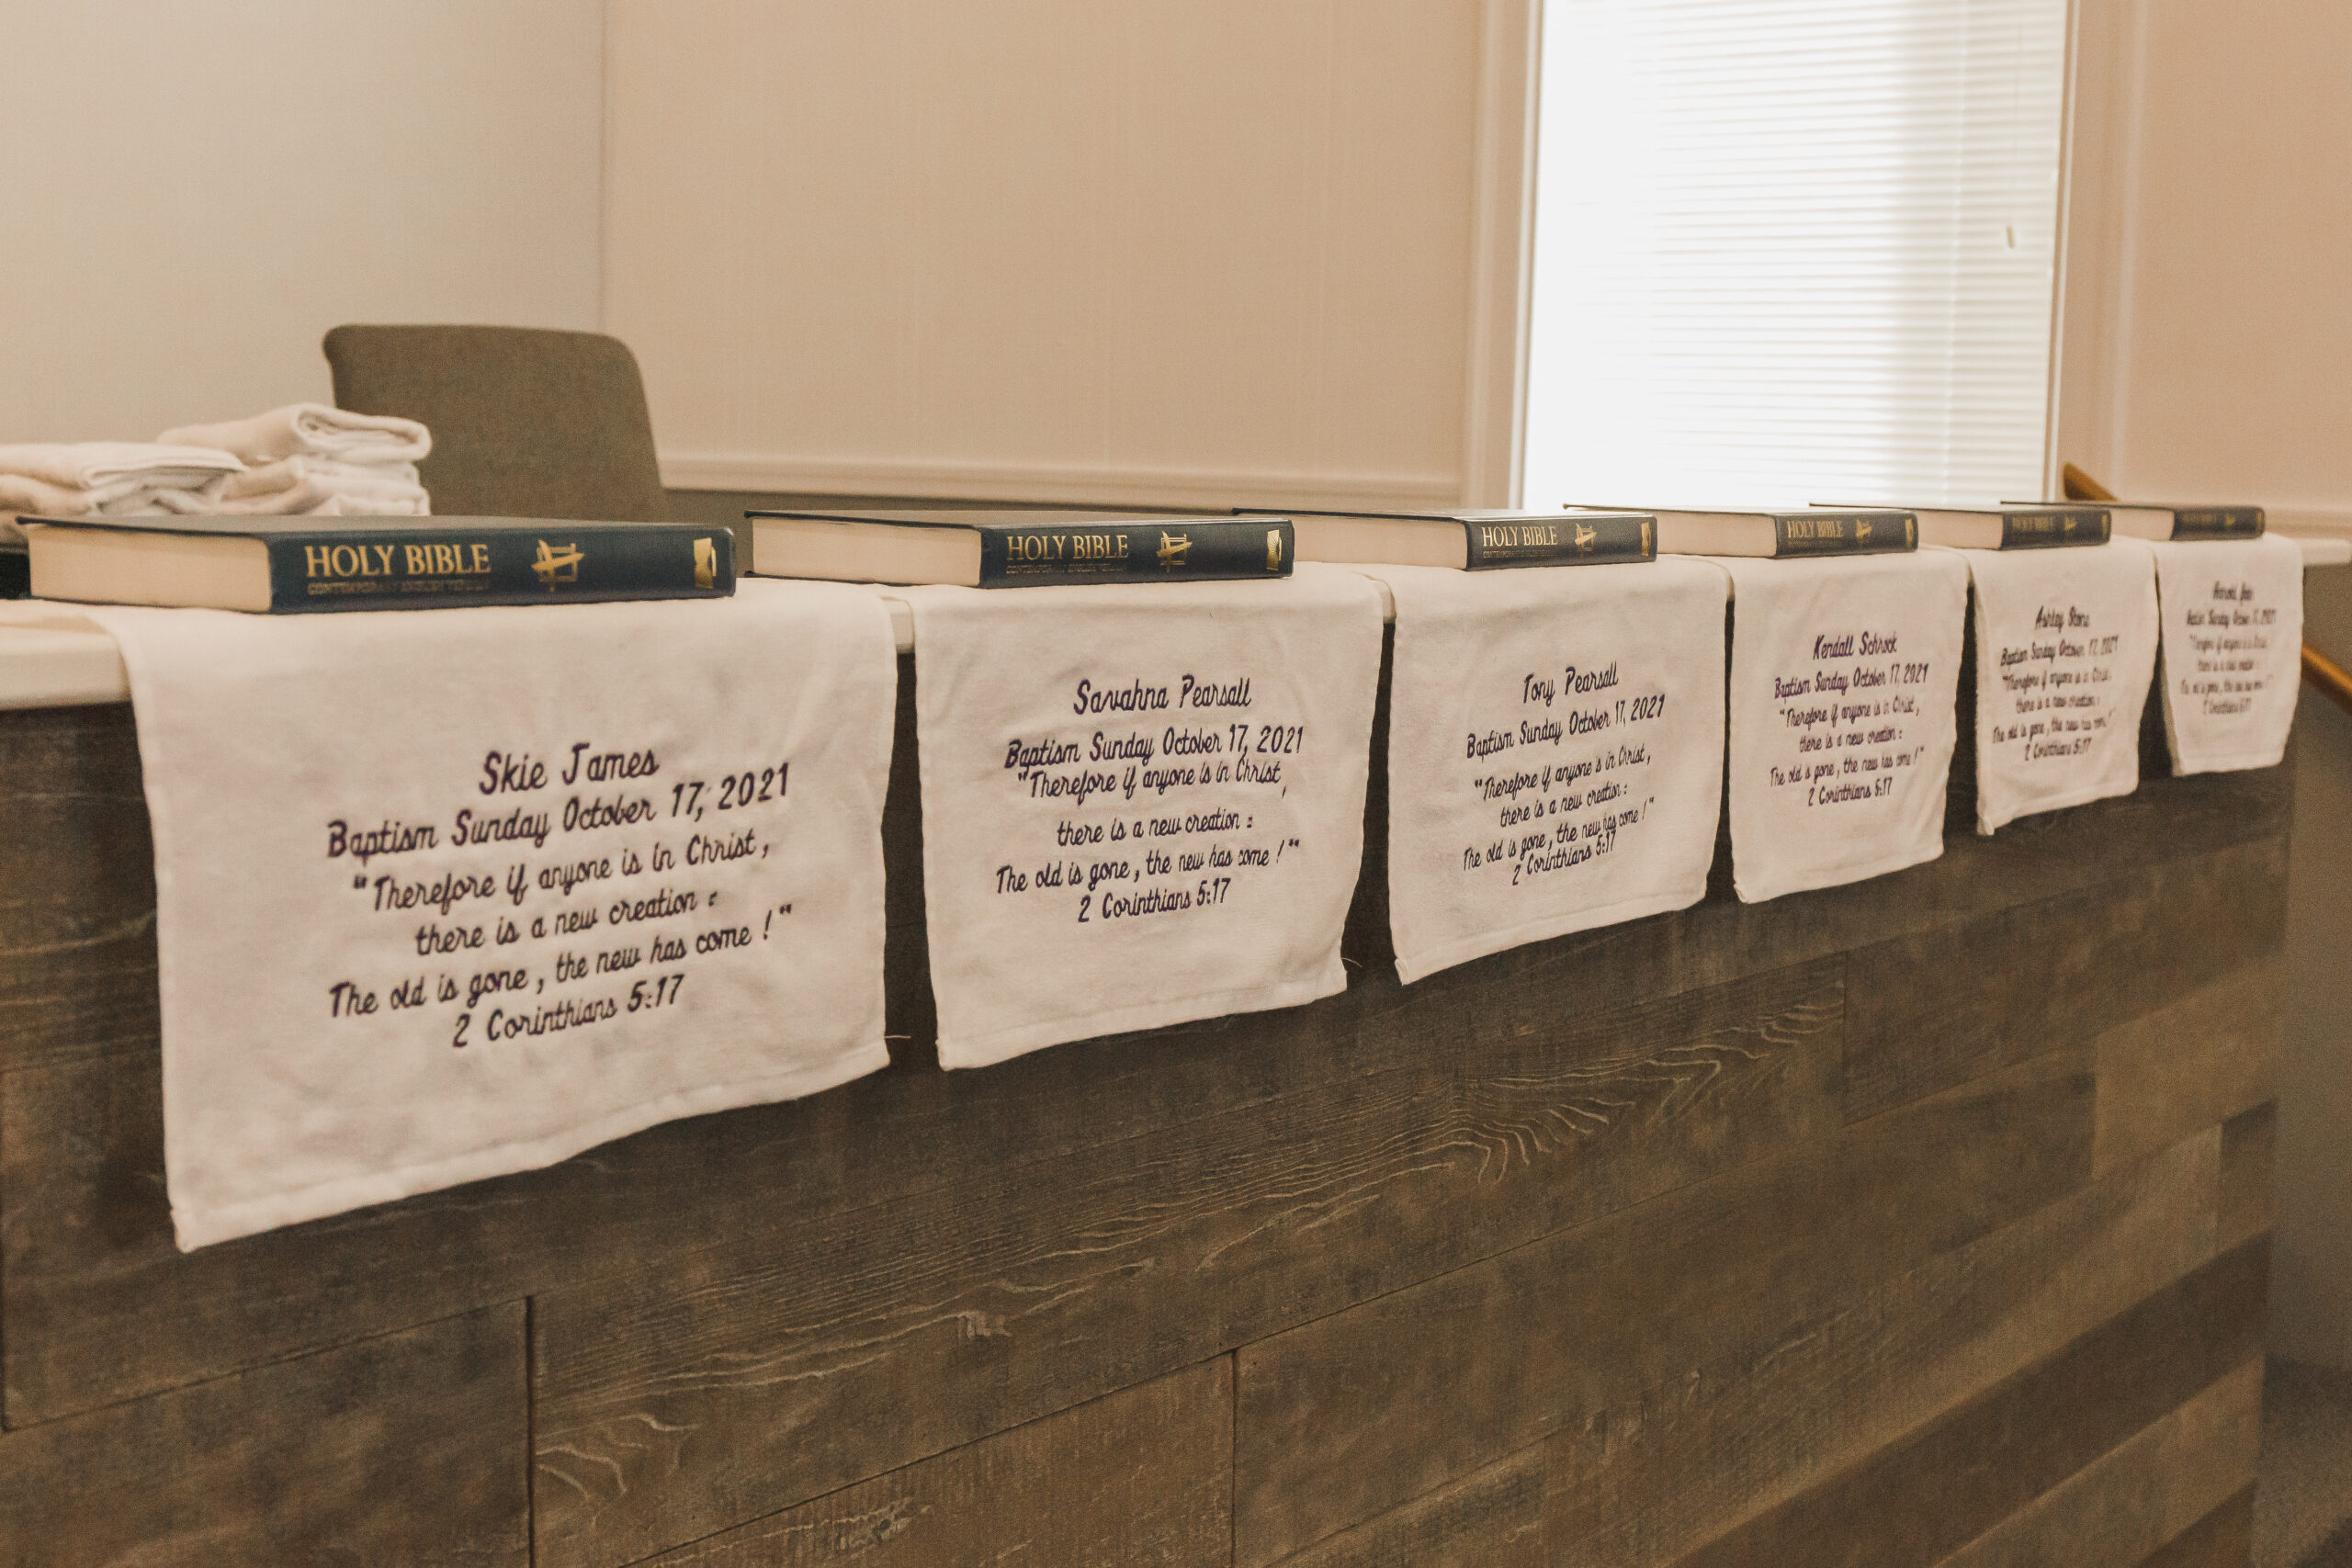 HOLY BIBLE
CONTEMPORARY ENGLISH VERSION
Skie James
Baptism Sunday October 17, 2021
"Therefore if anyone is in Christ,
there is a new creation:
The old is gone, the new has come!"
2 Corinthians 5:17
HOLY BIBLE
CONTEMPORARY ENGLISH VERSION
Savahna Pearsall
Baptism Sunday October 17, 2021
"Therefore if anyone is in Christ,
there is a new creation:
The old is gone, the new has come!"
2 Corinthians 5:17
HOLY BIBLE
CONTEMPORARY ENGLISH VERSION
Tony Pearsall
Baptism Sunday October 17, 2021
"Therefore if anyone is in Christ,
there is a new creation:
The old is gone, the new has come!"
2 Corinthians 5:17
HOLY BIBLE
Kendall Schrock
Baptism Sunday October 17, 2021
"Therefore if anyone is in Christ,
there is a new creation:
The old is gone, the new has come!"
2 Corinthians 5:17
HOLY BIBLE
Ashley Stone
Baptism Sunday October 17, 2021
"Therefore if anyone is in Christ,
there is a new creation:
The old is gone, the new has come!"
2 Corinthians 5:17
HOLY BIBLE
Baptism Sunday October 17, 2021
"Therefore if anyone is in Christ,
there is a new creation:
The old is gone, the new has come!"
2 Corinthians 5:17